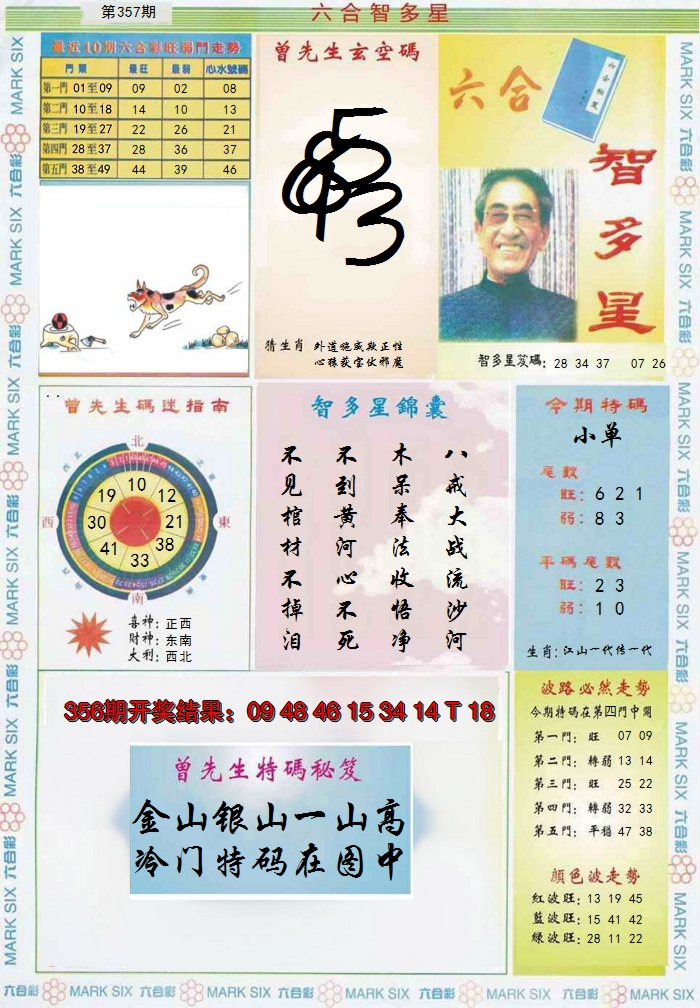 第357期
六合智多星
最近10期六合彩旺弱門走勢
門票 最旺 最弱 心水號碼
第一門 01至09 09 02 08
第二門 10至18 14 10 13
第三門 19至27 22 26 21
第四門 28至37 28 36 37
第五門 38至49 44 39 46
曾先生玄空碼
猜生肖 外道施威欺正性
心猿获宝伏邪魔
六合
智多星
智多星笈碼: 28 34 37 07 26
曾先生碼迷指南
北
東
南
西
10
12
21
38
33
41
30
19
喜神: 正西
財神: 东南
大利: 西北
智多星錦囊
八戒大战流沙河
木呆奉法收悟净
不到黄河心不死
不见棺材不掉泪
今期特碼
小单
尾數
旺: 6 2 1
弱: 8 3
平碼尾數
旺: 2 3
弱: 1 0
生肖: 江山一代传一代
356期开奖结果: 09 48 46 15 34 14 T 18
曾先生特碼秘笈
金山银山一山高
冷门特码在图中
波路必然走勢
今期特碼在第四門中開
第一門: 旺 07 09
第二門: 轉弱 13 14
第三門: 旺 25 22
第四門: 轉弱 32 33
第五門: 平穩 47 38
顏色波走勢
紅波旺: 13 19 45
藍波旺: 15 41 42
綠波旺: 28 11 22
六合彩 MARK SIX 六合彩 MARK SIX 六合彩 MARK SIX 六合彩 MARK SIX 六合彩 MARK SIX